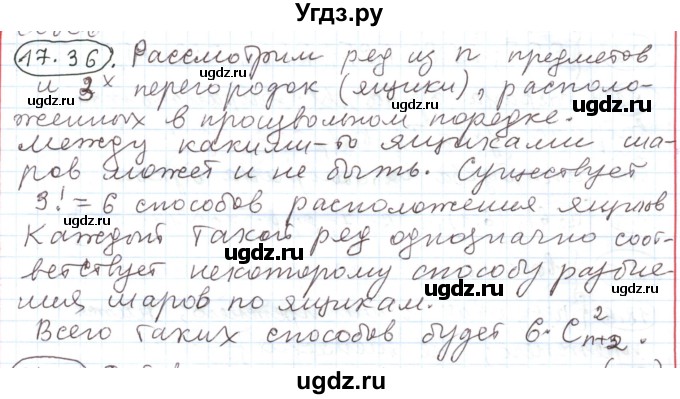 Угдз.ру
17.36. Рассмотрим ряд из n предметов
и 3х перегородок (ящики), располо-
женных в произвольном порядке.
Между какими-то ящиками ша-
ров может и не быть. Существует
3! = 6 способов расположения ящиков
Каждый такой ряд однозначно соот-
ветствует некоторому способу разбие-
ния шаров по ящикам.
Всего таких способов будет 6 · C²ₙ₊₂.
ugdz.ru
ugdz.ru
ugdz.ru
ugdz.ru
ugdz.ru
ugdz.ru
ugdz.ru
ugdz.ru
ugdz.ru
ugdz.ru
ugdz.ru